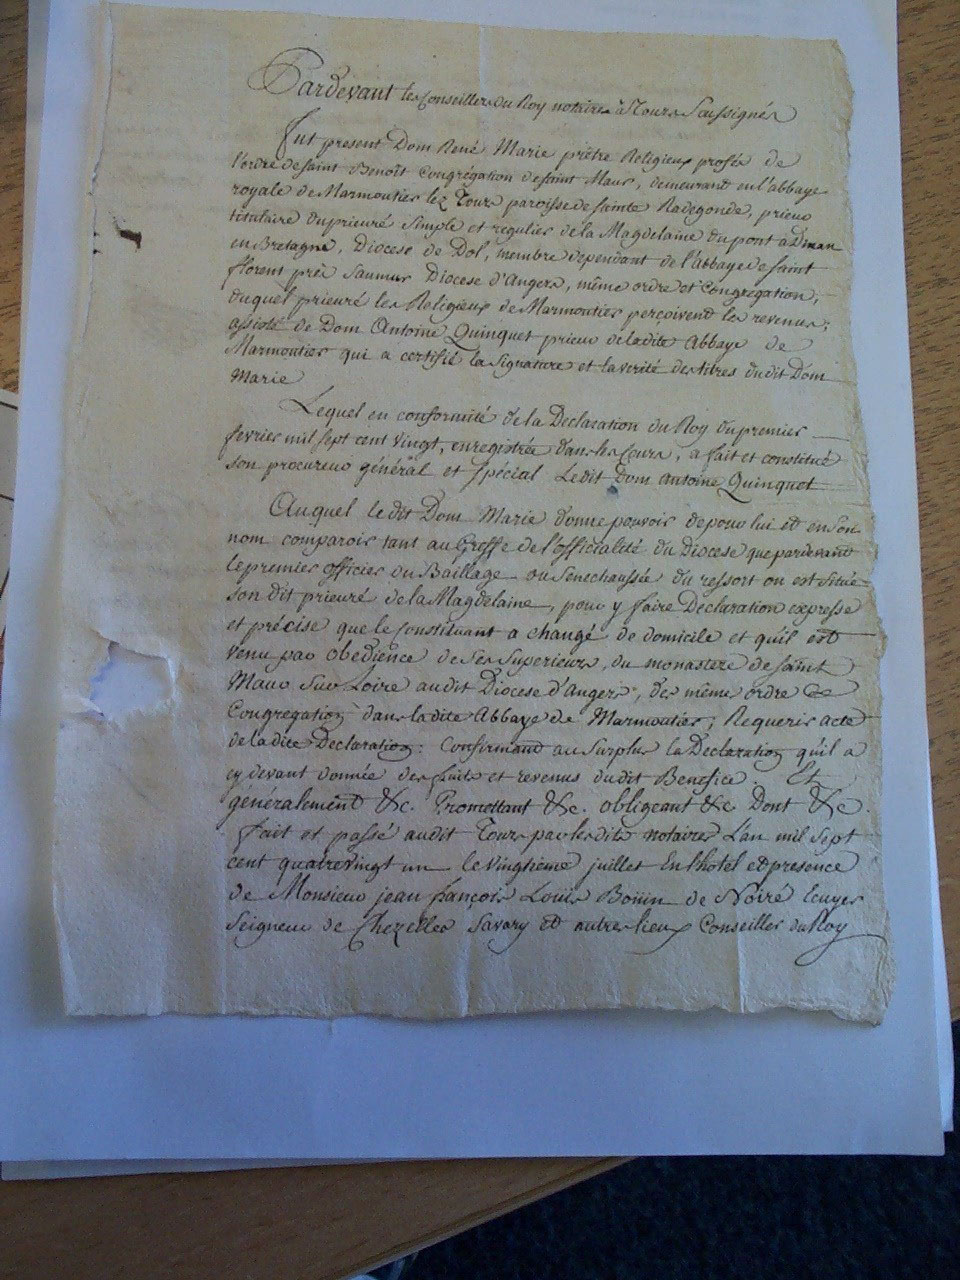 Pardevant les Conseillers du Roy notaires à Tours Soussignés
Fut present Dom René Marie prêtre Religieux profès de
l'ordre de saint Benoît Congregation de saint Maur, demeurant en l'abbaye
royale de Marmoutier lez Tours paroisse de sainte Radegonde, prieur
titulaire du prieuré simple et regulier de la Magdelaine du pont à Dinan
en Bretagne, Diocese de Dol, membre dependant de l'Abbaye de saint
florent près Saumur Diocese d'Angers, même ordre et Congregation,
duquel prieuré les Religieux de Marmoutier perçoivent les revenus;
assisté de Dom Antoine Quinquet prieur de la dite Abbaye de
Marmoutier qui a certifié la signature et la verité des titres du dit Dom
Marie
Lequel en conformité de la Declaration du Roy du premier
fevrier mil sept cent vingt, enregistrée dans les Cours, a fait et constitué
son procureur général et spécial Le dit Dom Antoine Quinquet
Auquel le dit Dom Marie donne pouvoir de pour lui et en son
nom comparoir tant au Greffe de l'officialité du Diocese que pardevant
le premier officier du Baillage ou Senechaussée du ressort ou est situé
son dit prieuré de la Magdelaine, pour y faire Declaration expresse
et précise que le Constituant a changé de domicile et qu'il est
venu par obedience de ses Superieurs, du monastere de saint
Maur sur Loire au dit Diocese d'Angers, des même ordre &
Congregation dans la dite Abbaye de Marmoutier; Requerir acte
de la dite Declaration: Confirmant au surplus la Declaration qu'il a
cy devant donnée des fruits et revenus du dit Benefice. Et
généralement &c. Promettant &c. obligeant &c. Dont &c.
fait et passé audit Tours par les dits notaires L'an mil sept
cent quatrevingt un le vingtieme juillet En l'hotel et presence
de Monsieur jean françois Louis Boüin de Noiré Ecuyer
Seigneur de Chezelles Savary et autres lieux Conseiller du Roy